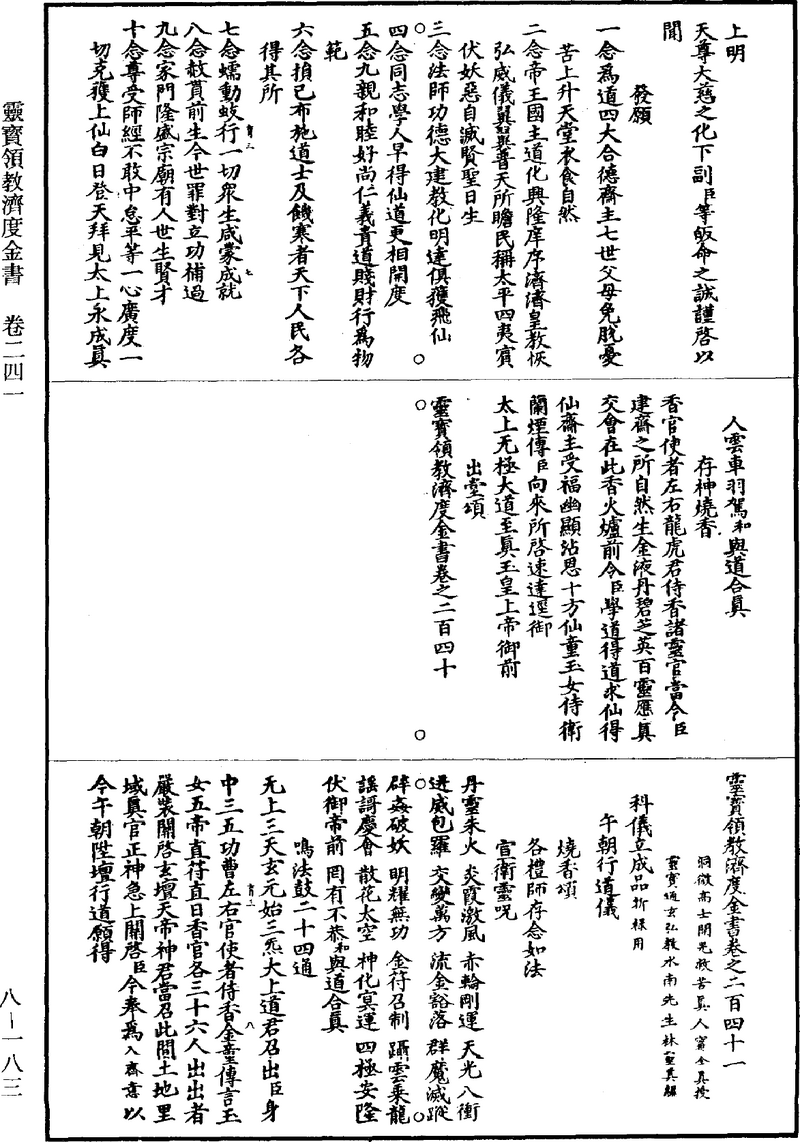 靈寶領教濟度金書　卷二四一
上明
天尊大慈之化下副臣等皈命之誠謹啓以
聞
發願
一念爲道四大合德齋主七世父母免脫憂
苦上升天堂衣食自然
二念帝王國主道化興隆庠序濟濟皇教恢
弘威儀翼翼普天所瞻民稱太平四夷賓
伏妖惡自滅賢聖日生
三念法師功德大建教化明達俱獲飛仙
四念同志學人早得仙道更相開度
五念九親和睦好尚仁義貴道賤財行爲物
範
六念損己布施道士及饑寒者天下人民各
得其所
七念蠕動蚑行一切衆生咸蒙成就
八念赦貰前生今世罪對立功補過
九念家門隆盛宗廟有人世生賢才
十念尊受師經不敢中怠平等一心廣度一
切克獲上仙白日登天拜見太上永成眞
人雲車羽駕和與道合眞
存神燒香
香官使者左右龍虎君侍香諸靈官當令臣
建齋之所自然生金液丹碧芝英百靈應眞
交會在此香火爐前令臣學道得道求仙得
仙齋主受福幽顯沾恩十方仙童玉女侍衛
蘭煙傳臣向來所啓速達逕御
太上无極大道至眞玉皇上帝御前
出堂頌
靈寶領教濟度金書卷之二百四十
靈寶領教濟度金書卷之二百四十一
洞微高士開光救苦眞人甯全眞授
靈寶通玄弘教水南先生林靈眞編
科儀立成品祈禳用
午朝行道儀
燒香頌
各禮師存念如法
宣衛靈呪
丹靈朱火　炎霞激風　赤輪剛運　天光八衝
迸威包羅　交變萬方　流金豁落　群魔滅蹤
辟姦破妖　明耀無功　金符召制　躡雲乘龍
謠謌慶會　散花太空　神化冥運　四極安隆
伏御帝前　罔有不恭和與道合眞
鳴法鼓二十四通
无上三天玄元始三炁大上道君召出臣身
中三五功曹左右官使者侍香金童傳言玉
女五帝直符直日香官各三十六人出出者
嚴裝關啓玄壇天帝神君當召此間土地里
域眞官正神急上關啓臣今奉爲入齋意以
今午朝陞壇行道願得
八—一八三